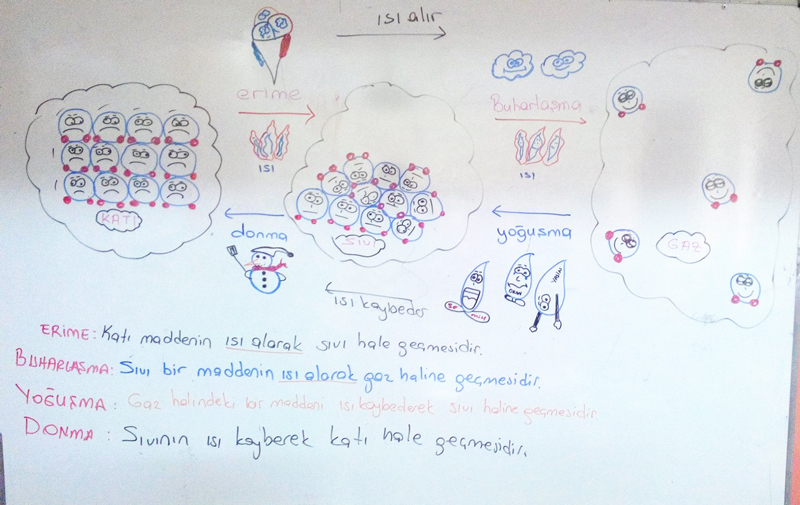 ISI alır
erime
ISI
Buharlaşma
ISI
KATI
SIVI
GAZ
donma
yoğuşma
ISI kaybeder
ERİME: Katı maddenin ısı alarak sıvı hale geçmesidir.
BUHARLAŞMA: Sıvı bir maddenin ısı alarak gaz haline geçmesidir.
YOĞUŞMA: Gaz halindeki bir maddeni ısı kaybederek sıvı haline geçmesidir
DONMA: Sıvının ısı kayberek katı hale geçmesidir.